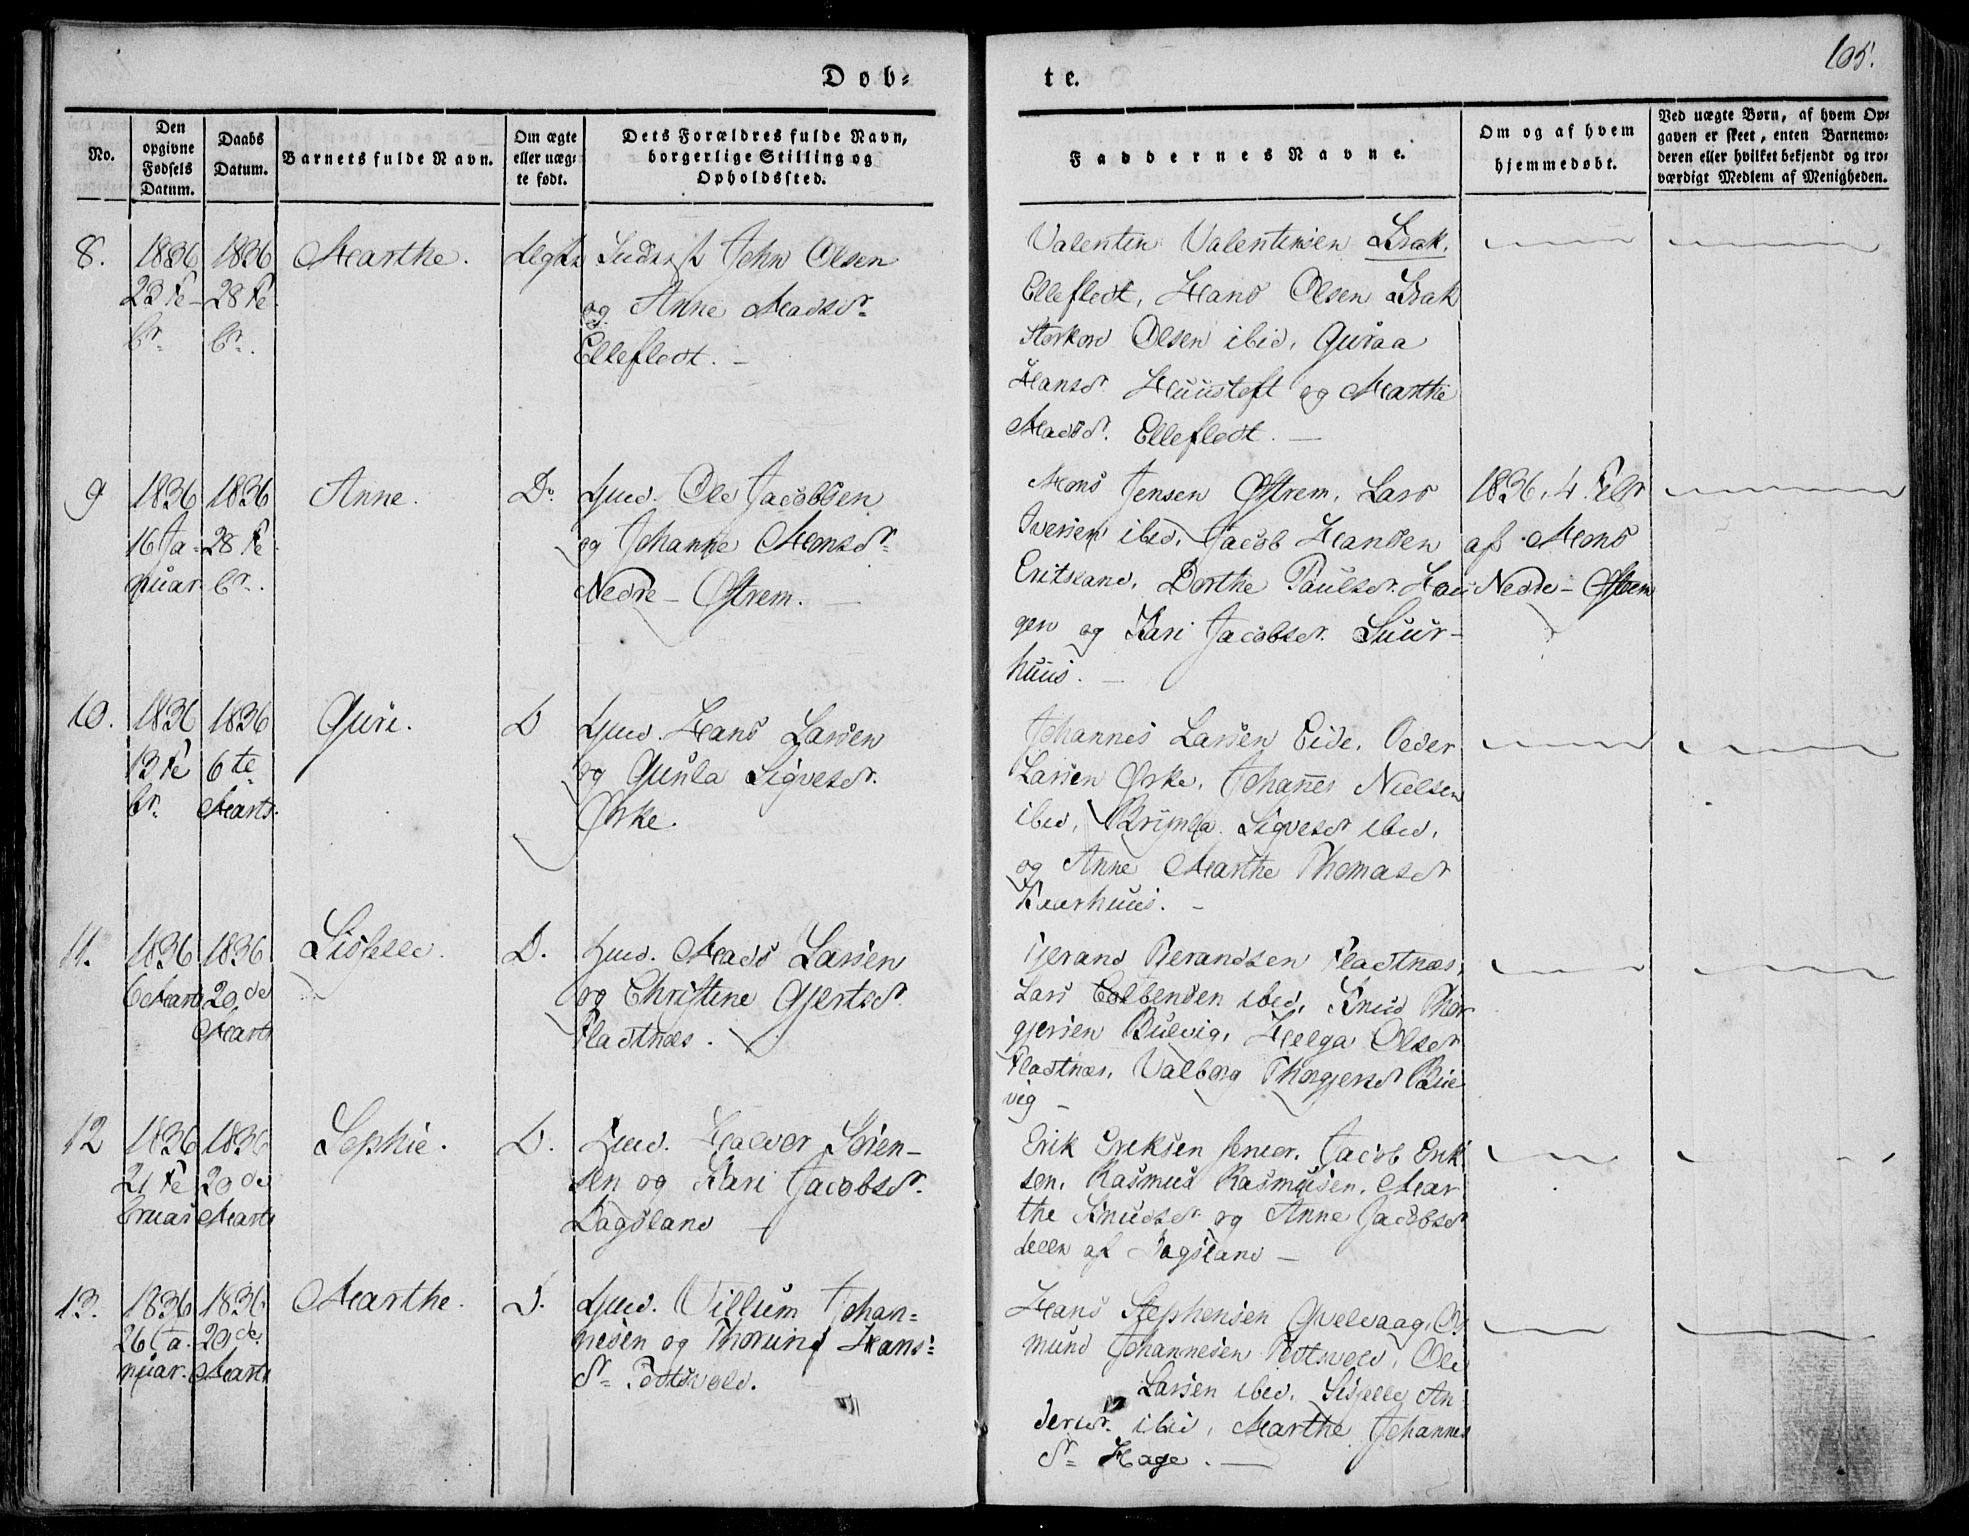 105.
Døb-
te.
No.
Den
opgivne
Fødsels
Datum.
Daabs
Datum.
Barnets fulde Navn.
Om ægte
eller uæg-
te født.
Dets Forældres fulde Navn,
borgerlige Stilling og
Opholdssted.
Faddernes Navne.
Om og af hvem
hjemmedøbt.
Ved uægte Børn, af hvem Op-
gaven er skeet, enten Barnemo-
deren eller hvilket bekjendt og tro-
værdigt Medlem af Menigheden.
8.
1836
23 Fe-
br.
1836
28 Fe
br.
Marthe.
John Olsen
og Anne Madsdr.
Elleflodt.
Valentin Valentinsen
Elleflodt, Hans Olsen
Storkor Olsen ibid, Guraa
Hansdr. Huustoft og Marthe
Madsdr. Elleflodt.
9
1836
16 Ja-
nuar.
1836
28 Fe
br.
Anne.
Do
Gmd. Ole Jacobsen
og Johanne Monsdr.
Nedre-Østrem.
Mons Jensen Østrem, Lars
Iversen ibid, Jacob Hansen
Eritsland, Dorthe Paulsdr. Hau
gen og Kari Jacobsdr. Suur-
huus.
1836. 4. Febr
af Mons
Nedre-Østrem
10.
1836
13 Fe
br.
1836
6te
Marts.
Guri.
D
Gmd. Hans Larsen
og Gunla Sigvesdr.
Ørke
Johannes Larsen Eide, Peder
Larsen Ørke, Johannes Nielsen
ibid, Brynla Sigvesdr ibid,
og Anne Marthe Thomasdr
11.
1836
6 Marts
1836
20de
Marts
Lispelle.
D.
Gmd. Mads Larsen
og Christine Gjertsdr.
Fladtnæs.
Gjerand Gjerandsen Fladtnæs,
Lars Colbensen ibid, Knud Thor
gjersen Buevig, Helga Olsdr
Fladtnæs, Valborg Thorgjersdr Bue
vig
12
1836
21 Fe
bruar
1836
20de
Marts
Sophie.
D.
Gmd. Halvor Soren-
sen og Kari Jacobsdr.
Dagsland
Erik Eriksen senior, Jacob Erik
sen, Rasmus Rasmusen, Mar
the Knudsdr og Anne Jacobsdr
alle af Dagsland
13.
1836
26 Ja-
nuar.
1836
20de
Marts
Marthe.
D.
Gmd. Villum Johan-
nesen og Thorine Hans-
dr. Todtsvold.
Hans Stephensen Qvelvaag,
mund Johannesen Todtsvold, Ole
Larsen ibid, Siselle An
dersdr. ibid, Marthe Johannes
dr. Hage.